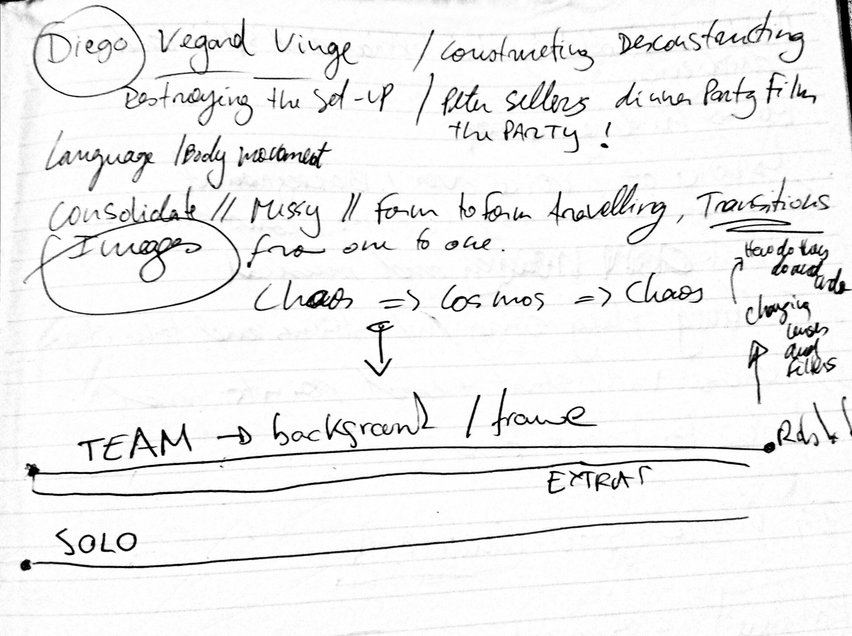 Diego Vegard Vinge / Constructing Desconstructing
Destroying the Set-up / Peter Sellers dinner Party Film
the PARTY !
Language / Body movement
Consolidate // Missy // Form to form travelling, Transitions
Images from one to one.
How do they
Chaos => Cosmos => Chaos
Changing
lenses
and
Filters
TEAM → background / frame
EXTRAS
SOLO